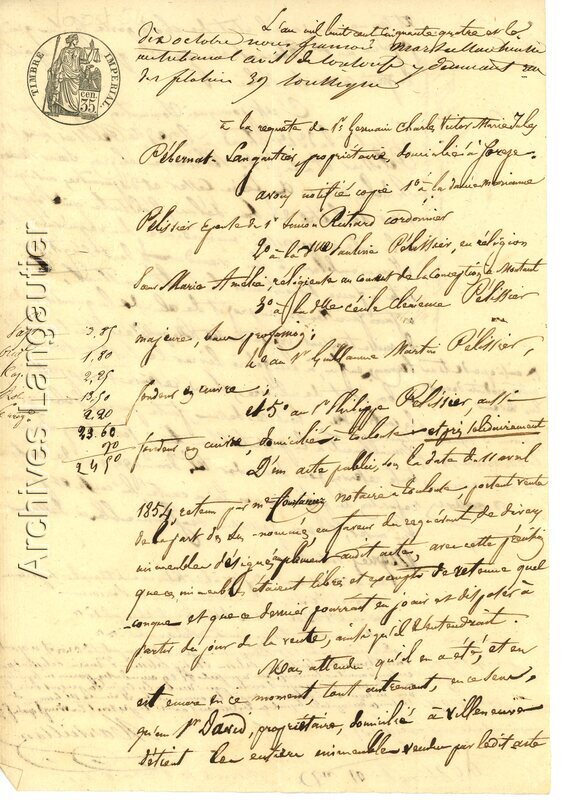 TIMBRE IMPERIAL
35 cen.
L'an mil huit cent cinquante quatre et le
dix octobre nous françois huissier
au tribunal civil de toulouse y demeurant rue
des filatiers 39 soussigné
à la requête du Sr Germain Charles Victor Marie
Pébernat-Langautier, propriétaire, domicilié à
avons notifié copie 1o à la dame marianne
Pélissier épouse du Sr Simon Ruhard cordonnier
2o à la Dlle Pauline Pélissier, en réligion
Sœur Marie Amélie, réligieuse au couvent de la Conception à
3o à la Dlle Cécile Clémence Pélissier
majeure, sans profession;
4o au Sr Guillaume Martin Pélissier,
fondeur en cuivre;
et 5o au Sr Philippe Pélissier, aussi
fondeur en cuivre, domiciliés à toulouse et pris solidairement
D'un acte public, sous la date du 11 avril
1854 retenu par me notaire à toulouse, portant vente
de la part des sus-nommés en faveur du requérant de divers
immeubles désignés audit acte, avec cette
que ces immeubles étaient libres et exempts de retenue quel
conque et que ce dernier pourrait en jouir et disposer à
partir du jour de la vente, ainsi qu'il l'entendrait.
Mais attendu qu'il en a été, et en
est encore en ce moment, tout autrement, en ce sens,
qu'un Sr David, propriétaire, domicilié à Villeneuve
détient les entiers immeubles vendus par ledit acte
3.85
1.80
2.25
13.50
2.20
23.60
90
24.50
Archives Langautier